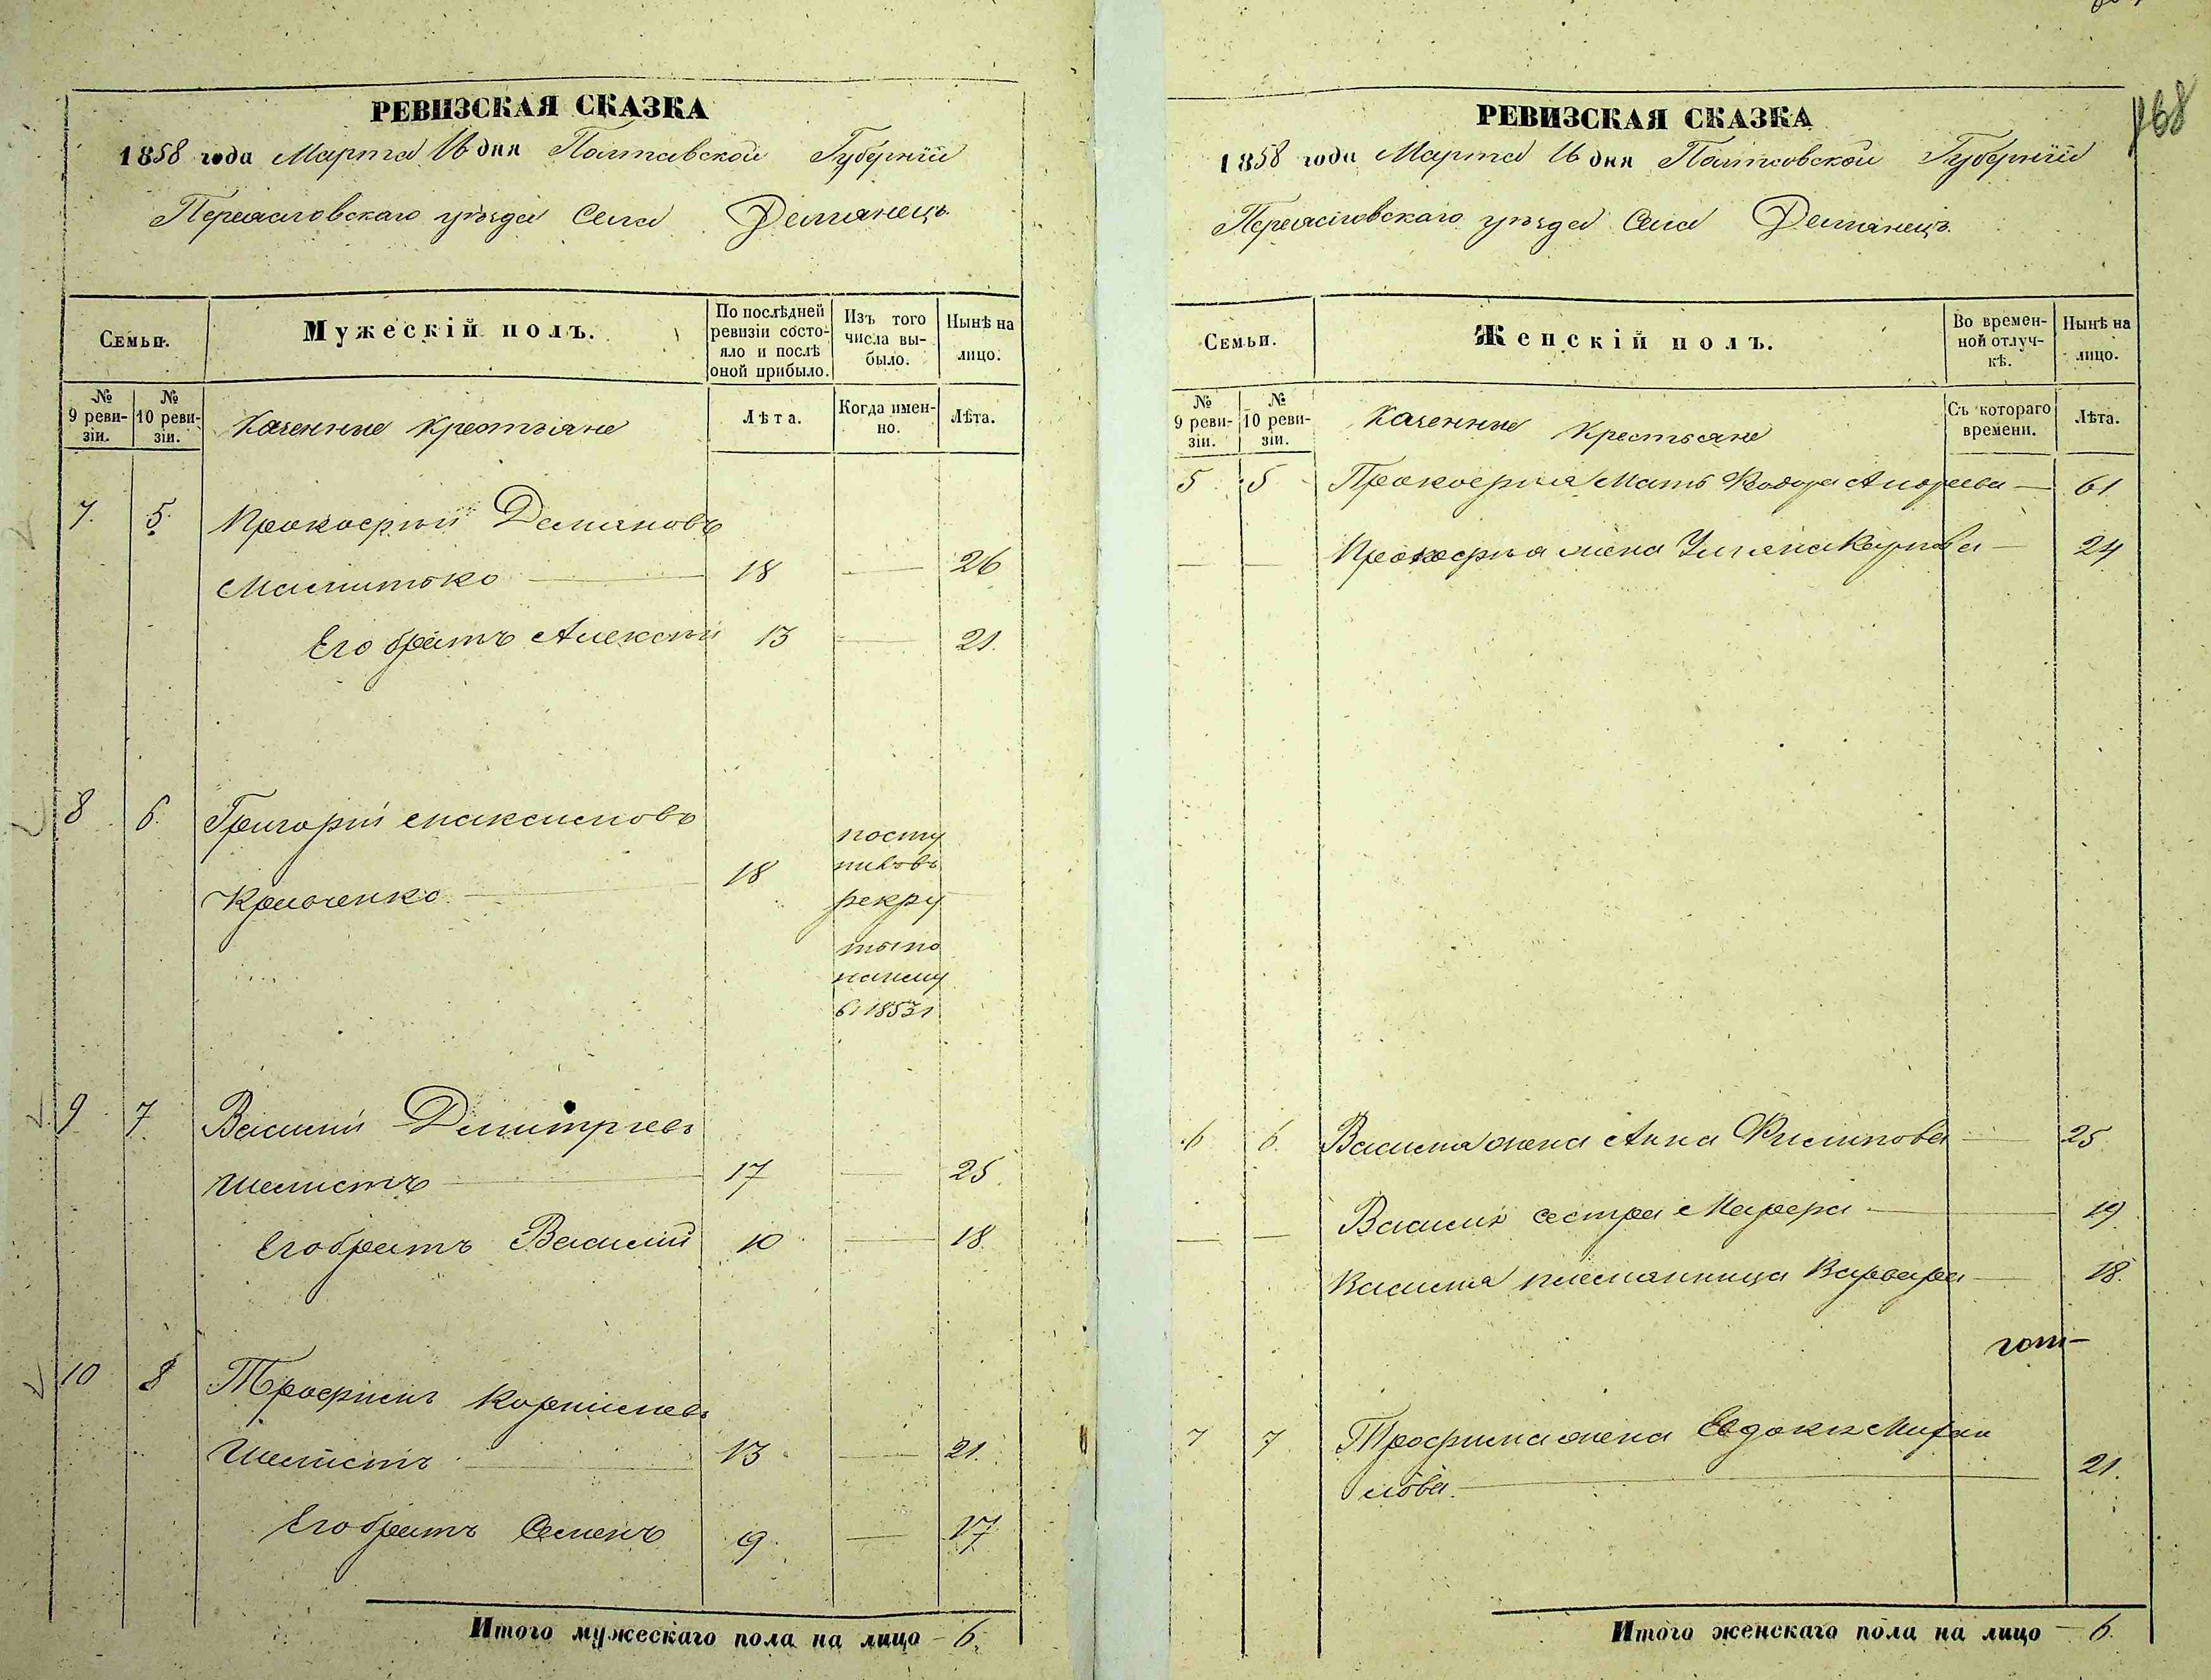 РЕВИЗСКАЯ СКАЗКА
1858 года Марта 16 дня Полтавской Губерніи
Переяславскаго уѣзда Села Демянецъ
Семьи.
Мужескій полъ.
По послѣдней ревизіи состо-
яло и послѣ оной прибыло.
Изъ того числа вы-
было.
Нынѣ на лицо.
№ 9 реви-
зіи.
№ 10 реви-
зіи.
Казенные крестьяне
Лѣта.
Когда имен-
но.
Лѣта.
7. 5. Прокофій Демяновъ
18 — 26
Его братъ Алексѣй 13 — 21.
8 6. Григорій Максимовъ
18
посту
пилъ въ
рекру
ты по
найму
въ 1853 г
9 7. Василий Дмитріевъ
Шелистъ 17 — 25.
Его братъ Василий 10 — 18.
10 8 Трофимъ Корниліевъ
Шелистъ 13 — 21.
Его братъ Семенъ 9 — 17.
Итого мужескаго пола на лицо — 6.
168
РЕВИЗСКАЯ СКАЗКА
1858 года Марта 16 дня Полтавской Губерніи
Переяславскаго уѣзда Села Демянецъ.
Семьи.
Женскій полъ.
Во времен-
ной отлуч-
кѣ.
Нынѣ на лицо.
№ 9 реви-
зіи.
№ 10 реви-
зіи.
Казенные Крестьяне
Съ котораго времени.
Лѣта.
5 5 Прокофія Мать Андреева — 61
— — Прокофія жена Уліяна Карпова — 24
6 6. Василія жена Анна Филипова — 25
— — Василія сестра Марфа — 19
Василія племянница Варвара — 18.
7 7 Трофима жена Евдокія Михаи
лова. — 21.
Итого женскаго пола на лицо — 6.